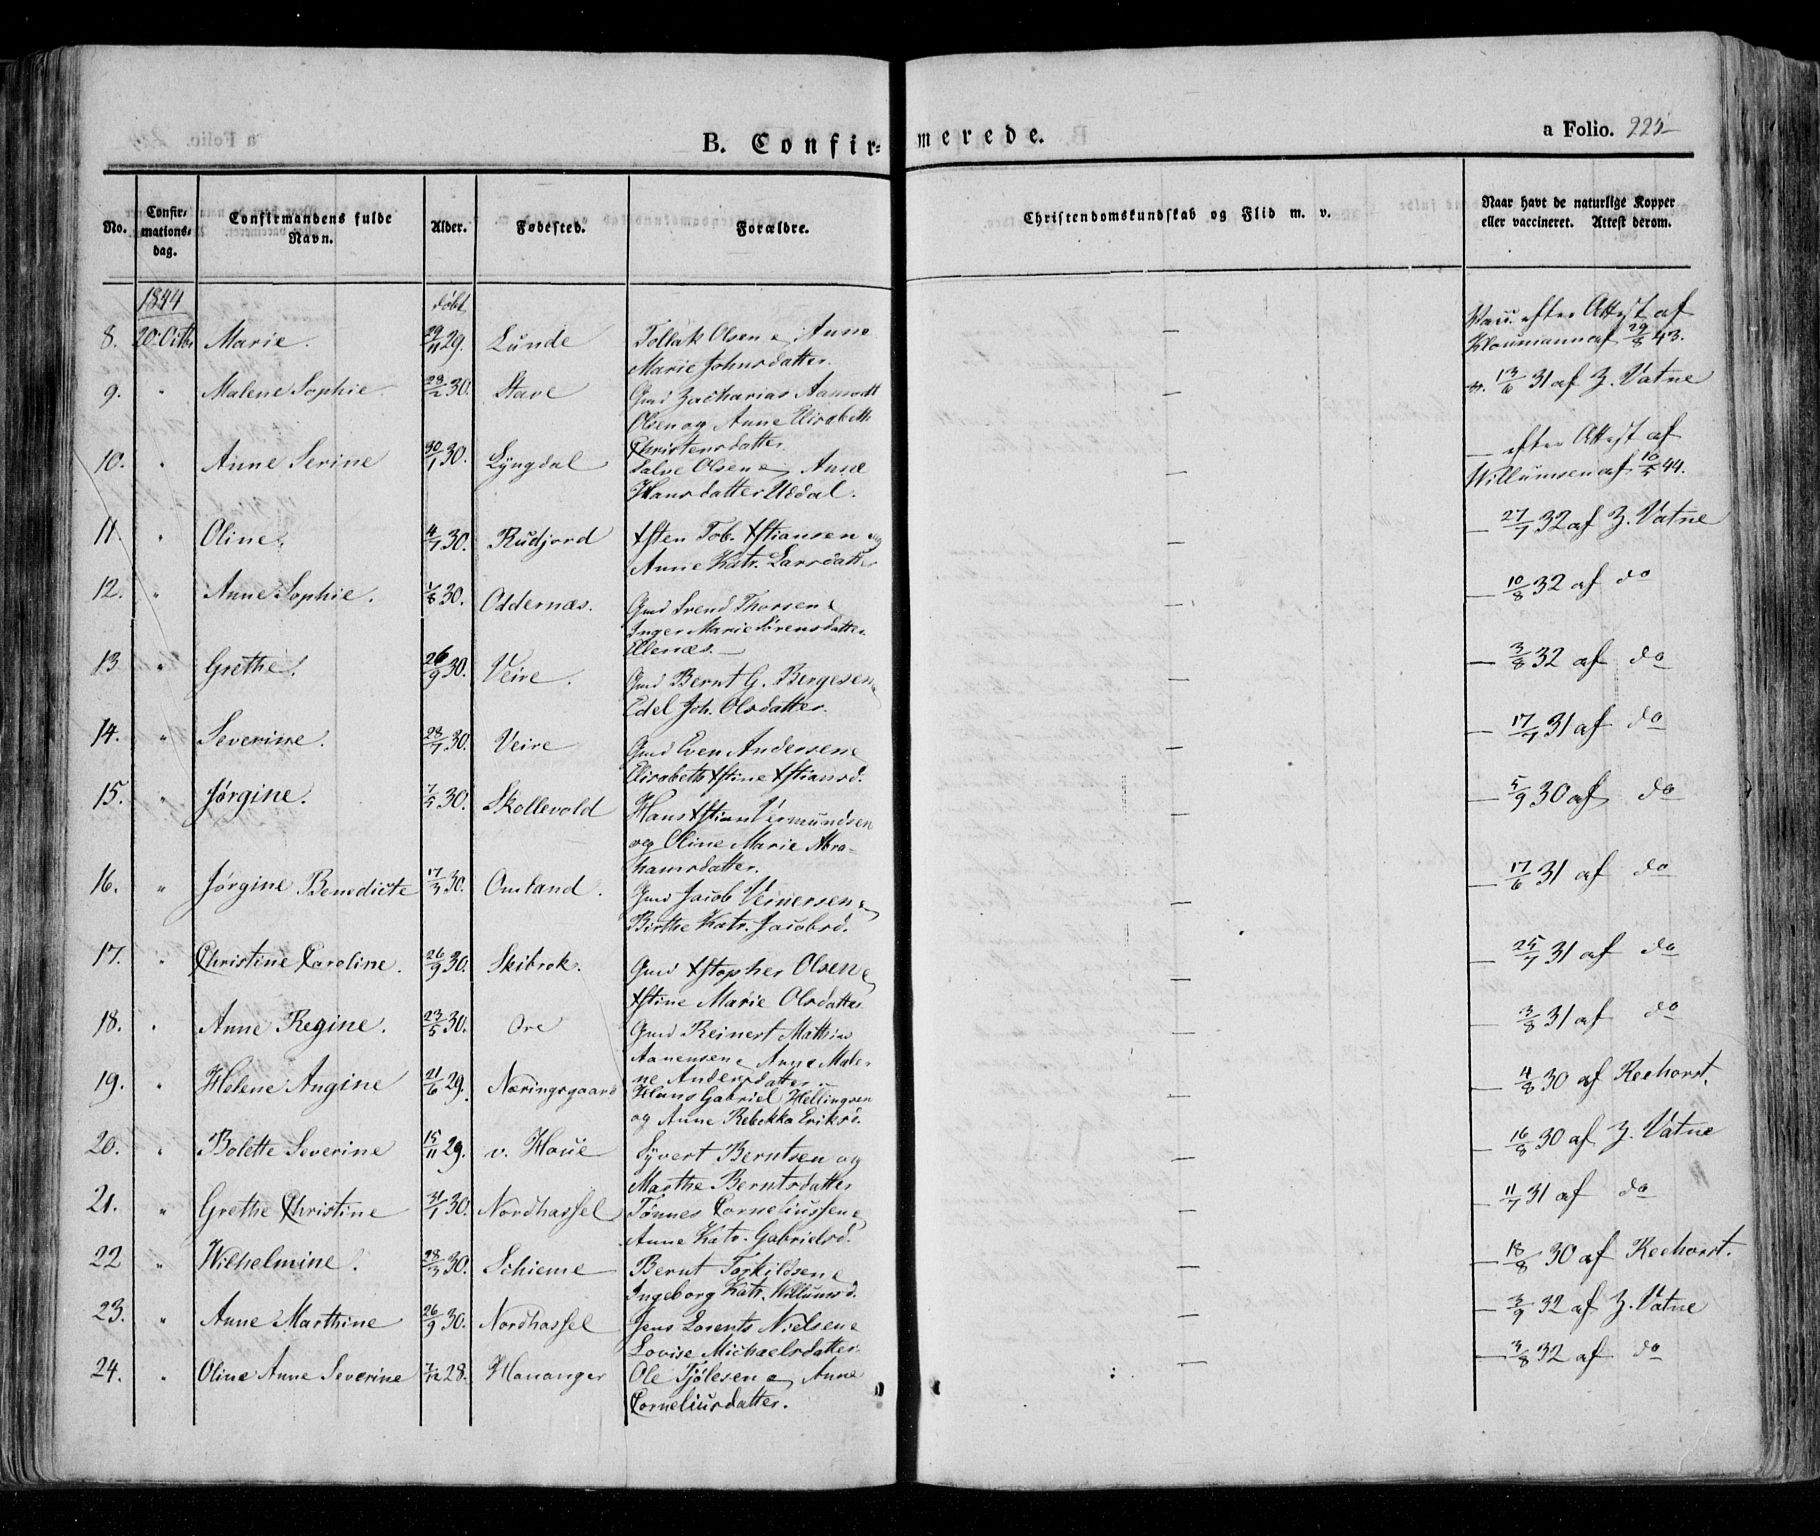 B. Confir=merede.
a Folio. 225
No.
Confir-
mations-
dag.
Confirmandens fulde
Navn.
Alder.
Fødested.
Forældre.
Christendomskundskab og Flid m. v.
Naar havt de naturlige Kopper
eller vaccineret. Attest derom.
1844
døbt
8. 20. Octbr Marie. 29/11 29. Lunde Tollak Olsen & Anne
Marie Johnsdatter. Vacc. efter Attest af
Kloumann af 29/8 43.
9. " Malene Sophie. 23/2 30. Stave Gmd Zacharias Aanodt
Olsen og Anne Elisabeth
Christensdatter — 13/6 31 af Z. Vatne
10. " Anne Serine 30/1 30. Lyngdal Salve Olsen & Anne
Hansdatter Uddal. — — efter Attest af
Willumsen af 10/5 44.
11. " Oline. 4/7 30. Rudjord Xsten Tob. Xstiansen og
Anne Katr. Larsdatter — — 27/7 32 af Z. Vatne
12. " Anne Sophie. 1/8 30. Oddernæs. Gmd Svend Thorsen &
Inger Marie Sørensdatter
Ellenæs. — — — 10/8 32 af do
13 " Grethe. 26/9 30. Veire. Gmd Bernt G. Børgesen &
Edel Joh. Olsdatter. — — 3/8 32 af do
14. " Severine. 28/7 30. Veire Gmd Even Andersen &
Elisabeth Xstine Xstiansd. — — 17/7 31 af do
15. " Jørgine. 7/5 30. Skollevold Hans Xstian Vermundsen
og Oline Marie Abra-
hamsdatter. — — 5/9 30 af do
16. " Jørgine Benedicte 17/3 30. Omland. Gmd Jacob Vernersen &
Birthe Katr. Jacobsd. — — 17/6 31 af do
17. " Christine Caroline. 26/9 30. Skibrok. Gmd Xstopher Olsen &
Xstine Marie Olsdatter — — 25/7 31 af do
18. " Anne Regine. 23/5 30. Ore Gmd Reinert Mathias
Aanensen & Anne Male-
ne Andersdatter — — 3/8 31 af do
19. " Helene Angine 21/6 29. Næringsgaard Hans Gabriel Hellingsen
og Anne Rebekka Eriksd. — — 4/8 30 af Reehorst.
20. " Bolette Severine 15/11 29. v. Houe Syvert Berntsen og
Marthe Berntsdatter — — 16/8 30 af Z. Vatne
21. " Grethe Christine 31/1 30. Nordhassel Tønnes Corneliussen &
Anne Katr. Gabrielsd. — — 11/7 31 af do
22 " Wilhelmine. 28/3 30. Schieme Bernt Torkildsen &
Ingeborg Katr. Willumsd. — — 18/8 30 af Reehorst.
23. " Anne Marthine 26/9 30. Nordhassel Jens Lorents Nielsen &
Lovise Michaelsdatter — — 3/9 32 af Z. Vatne
24. " Oline Anne Severine 7/12 28. Hananger Ole Tjølesen & Anne
Corneliusdatter. — — 3/8 32 af do